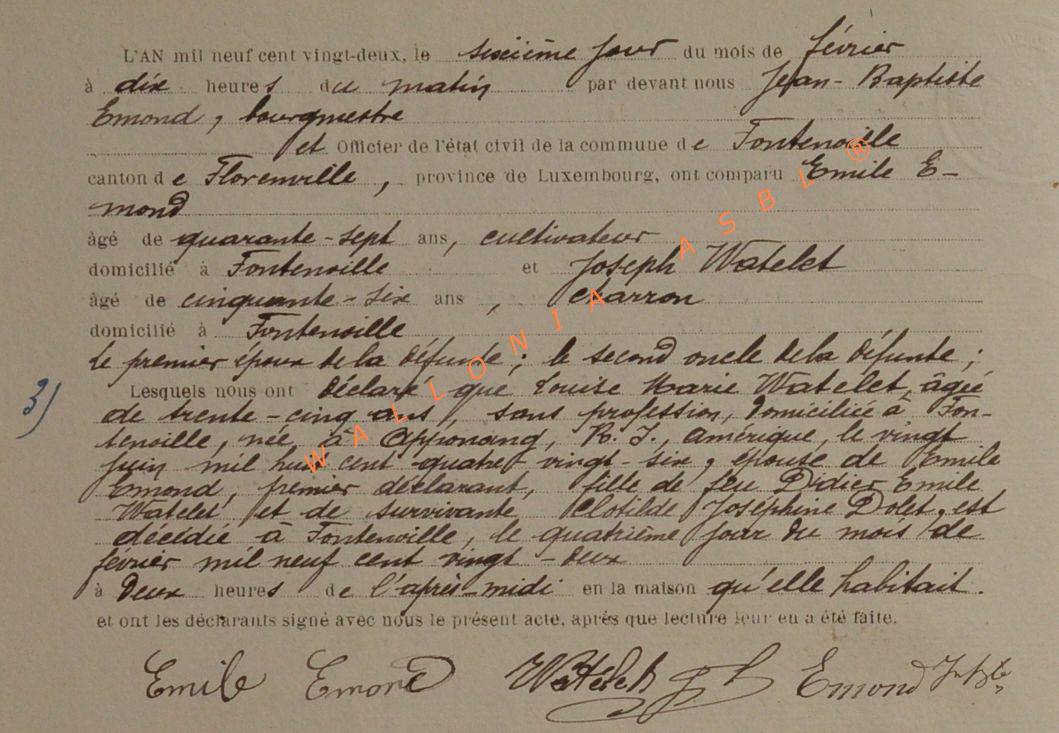 L'AN mil neuf cent vingt-deux, le sixième jour du mois de février
à dix heures du matin par devant nous Jean-Baptiste
Emond, bourgmestre
et Officier de l'état civil de la commune de Fontenoille
canton de Florenville, province de Luxembourg, ont comparu Emile E-
mond
âgé de quarante-sept ans, cultivateur
domicilié à Fontenoille et Joseph Watelet
âgé de cinquante-six ans, charron
domicilié à Fontenoille
le premier époux de la défunte ; le second oncle de la défunte ;
Lesquels nous ont déclaré que Louise Marie Watelet, âgée
de trente-cinq ans, sans profession, domiciliée à Fon-
tenoille, née à Apponang, R. I., Amérique, le vingt
juin mil huit cent quatre-vingt-six, épouse de Emile
Emond, premier déclarant, fille de feu Didier Emile
Watelet et de survivante Clotilde Joséphine Dolet, est
décédée à Fontenoille, le quatrième jour du mois de
février mil neuf cent vingt-deux
à deux heures de l'après-midi en la maison qu'elle habitait.
et ont les déclarants signé avec nous le présent acte, après que lecture leur en a été faite.
Emile Emond Watelet J Emond
3)
WALLONIA ASBL ®